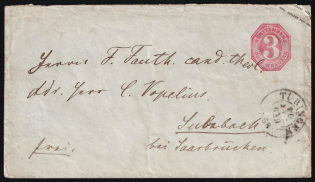 3
Herrn F. Fauth. cand. theol.
Adr. Herr C. Vopelius.
Sulzbach
frei. bei Saarbrücken.
TÜBINGEN